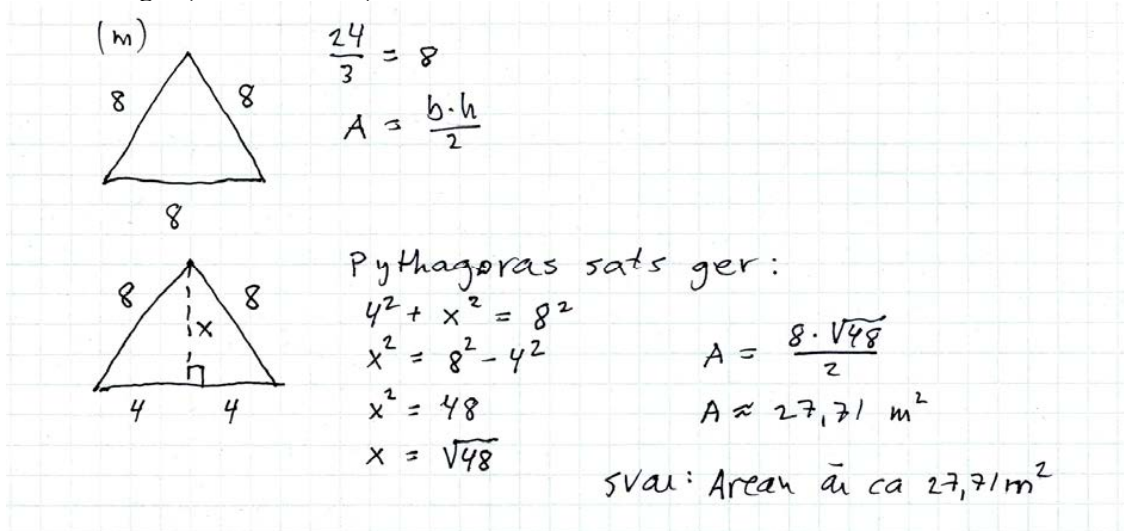 (m)
24/3 = 8
8 8
A = b·h/2
8
Pythagoras sats ger:
8 8
x
4 4
4² + x² = 8²
x² = 8² - 4²
x² = 48
x = √48
A = 8·√48/2
A ≈ 27,71 m²
svar: Arean är ca 27,71 m²